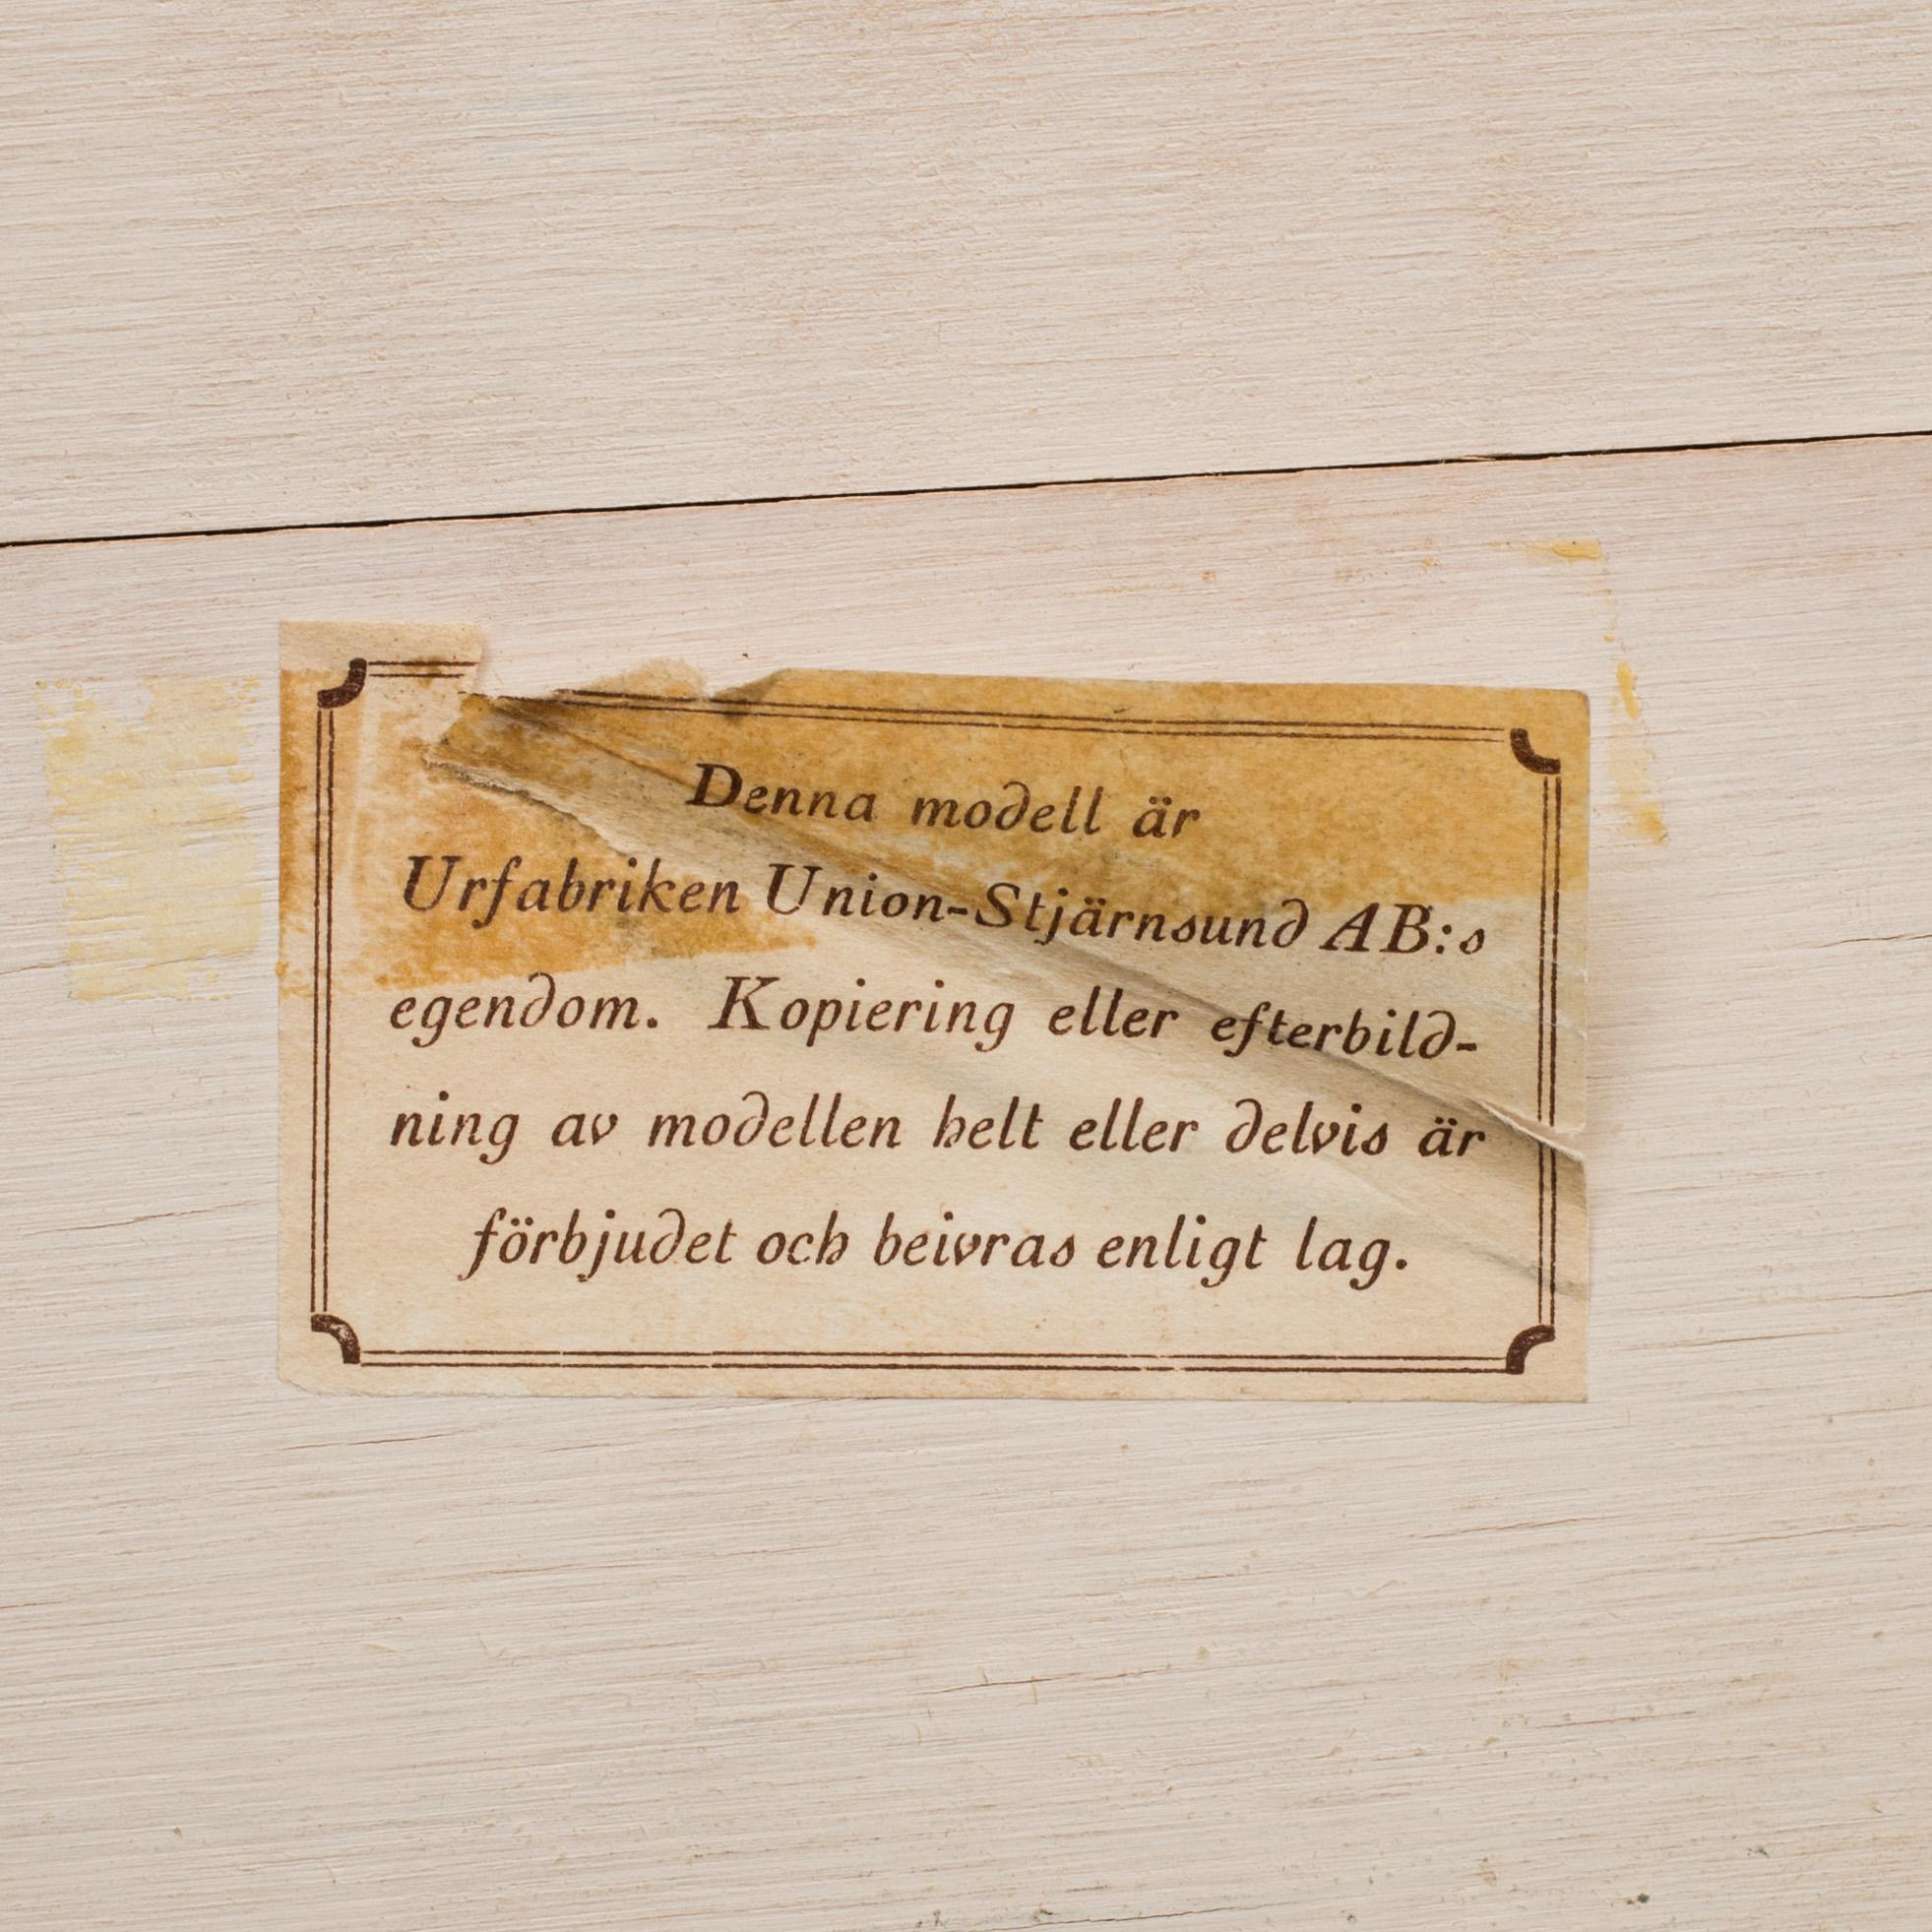 Denna modell är
Urfabriken Union-Stjärnsund AB:s
egendom. Kopiering eller efterbild-
ning av modellen helt eller delvis är
förbjudet och beivras enligt lag.